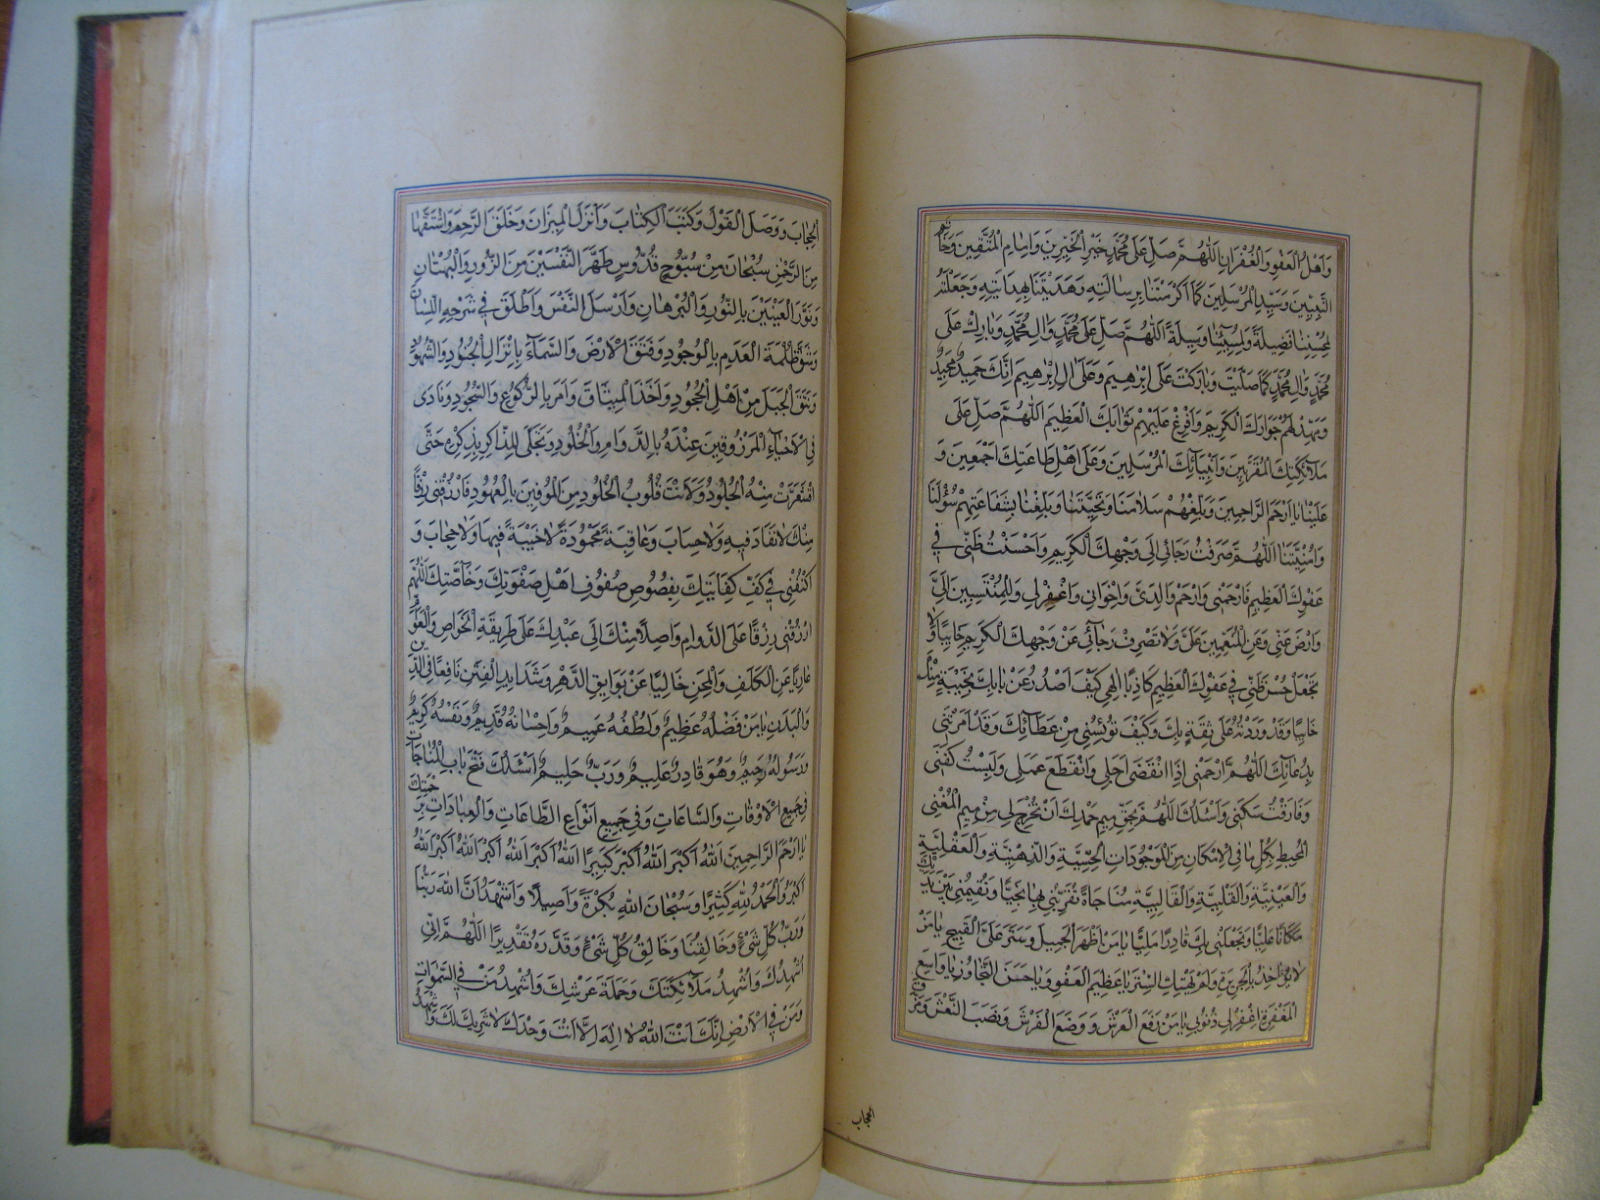 وَاَهْلُ الْعَفْوِ وَالْغُفْرَانِ اَللّٰهُمَّ صَلِّ عَلٰى مُحَمَّدٍ خَيْرِ الْخَيِّرِينَ وَاِمَامِ الْمُتَّقِينَ وَخَاتَمِ
النَّبِيِّينَ وَسَيِّدِ الْمُرْسَلِينَ كَمَا اَكْرَمْتَنَا بِرِسَالَتِهِ وَهَدَيْتَنَا بِهِدَايَتِهِ وَجَعَلْتَهُ
لِمُحْسِنِنَا فَضِيلَةً وَلِمُسِيئِنَا وَسِيلَةً اَللّٰهُمَّ صَلِّ عَلٰى مُحَمَّدٍ وَاٰلِ مُحَمَّدٍ وَبَارِكْ عَلٰى
مُحَمَّدٍ وَاٰلِ مُحَمَّدٍ كَمَا صَلَّيْتَ وَبَارَكْتَ عَلٰى اِبْرٰهِيمَ وَعَلٰى اٰلِ اِبْرٰهِيمَ اِنَّكَ حَمِيدٌ مَجِيدٌ
جِوَارَكَ الْكَرِيمَ وَاَفْرِغْ عَلَيْهِمْ ثَوَابَكَ الْعَظِيمَ اَللّٰهُمَّ صَلِّ عَلٰى
مَلَائِكَتِكَ الْمُقَرَّبِينَ وَاَنْبِيَائِكَ الْمُرْسَلِينَ وَعَلٰى اَهْلِ طَاعَتِكَ اَجْمَعِينَ وَ
عَلَيْنَا يَا اَرْحَمَ الرَّاحِمِينَ وَبَلِّغْهُمْ سَلَامَنَا وَتَحِيَّتَنَا وَبَلِّغْنَا بِشَفَاعَتِهِمْ سُؤْلَنَا
وَاُمْنِيَّتَنَا اَللّٰهُمَّ صَرَفْتُ رَجَائِي اِلٰى وَجْهِكَ الْكَرِيمِ وَاَحْسَنْتُ ظَنِّي فِي
عَفْوِكَ الْعَظِيمِ فَارْحَمْنِي وَارْحَمْ وَالِدَيَّ وَاِخْوَانِي وَاغْفِرْ لِي وَلِلْمُنْتَسِبِينَ اِلَيَّ
وَارْضَ عَنِّي وَعَنِ الْمُنْعِمِينَ عَلَيَّ وَلَا تَصْرِفْ رَجَائِي عَنْ وَجْهِكَ الْكَرِيمِ خَائِبًا وَلَا
تَجْعَلْ حُسْنَ ظَنِّي فِي عَفْوِكَ الْعَظِيمِ كَاذِبًا اِلٰهِي كَيْفَ اَصْدُرُ عَنْ بَابِكَ بِخَيْبَةٍ مِنْكَ
خَائِبًا وَقَدْ وَرَدْتُهُ عَلٰى ثِقَةٍ بِكَ وَكَيْفَ تُؤْيِسُنِي مِنْ عَطَائِكَ وَقَدْ اَمَرْتَنِي
بِدُعَائِكَ اَللّٰهُمَّ ارْحَمْنِي اِذَا انْقَضٰى اَجَلِي وَانْقَطَعَ عَمَلِي وَلَبِسْتُ كَفَنِي
وَفَارَقْتُ سَكَنِي وَاَسْئَلُكَ اَللّٰهُمَّ بِحَقِّ مِيمِ حَمْدِكَ اَنْ تُخْرِجَ لِي مِنْ مِيمِ الْمُغْنِي
الْمُحِيطِ بِكُلِّ مَا فِي الْاِمْكَانِ مِنَ الْمَوْجُودَاتِ الْحِسِّيَّةِ وَالذِّهْنِيَّةِ وَالْعَقْلِيَّةِ
وَالْعَيْنِيَّةِ وَالْقَلْبِيَّةِ وَالْقَالِبِيَّةِ مُنَاجَاةً تُقَرِّبُنِي بِهَا نَجِيًّا وَتُقِيمُنِي بَيْنَ يَدَيْكَ
مَكَانًا عَلِيًّا وَتَجْعَلَنِي بِكَ قَادِرًا مَلِيًّا يَا مَنْ اَظْهَرَ الْجَمِيلَ وَسَتَرَ عَلَى الْقَبِيحِ يَا مَنْ
لَا يُؤَاخِذُ بِالْجَرِيرَةِ وَلَمْ يَهْتِكِ السِّتْرَ يَا عَظِيمَ الْعَفْوِ وَيَا حَسَنَ التَّجَاوُزِ يَا وَاسِعَ
الْمَغْفِرَةِ اغْفِرْ لِي ذُنُوبِي يَا مَنْ رَفَعَ الْعَرْشَ وَوَضَعَ الْفَرْشَ وَنَصَبَ النَّعْشَ
الحجاب
الْحِجَابَ وَوَصَلَ الْقَوْلَ وَكَتَبَ الْكِتَابَ وَاَنْزَلَ الْمِيزَانَ وَخَلَقَ الرَّحِمَ وَاشْتَقَّهَا
مِنَ الرَّحْمٰنِ سُبْحَانَ مِنْ سُبُّوحٍ قُدُّوسٍ طَهَّرَ النَّفْسَيْنِ مِنَ الزُّورِ وَالْبُهْتَانِ
وَنَوَّرَ الْعَيْنَيْنِ بِالنُّورِ وَالْبُرْهَانِ وَاَرْسَلَ النَّفْسَ وَاَطْلَقَ فِي شَرْحِهِ اللِّسَانَ
وَشَقَّ ظُلْمَةَ الْعَدَمِ بِالْوُجُودِ وَفَتَقَ الْاَرْضَ وَالسَّمَاءَ بِاِنْزَالِ الْجُنُودِ وَالشُّهُودِ
وَنَتَقَ الْجَبَلَ مِنْ اَهْلِ الْجُحُودِ وَاَخَذَ الْمِيثَاقَ وَاَمَرَ بِالرُّكُوعِ وَالسُّجُودِ وَنَادٰى
فِي الْاَحْيَاءِ الْمَرْزُوقِينَ عِنْدَهُ بِالدَّوَامِ وَالْخُلُودِ وَتَجَلّٰى لِلذَّاكِرِ بِذِكْرِهِ حَتّٰى
اقْشَعَرَّتْ مِنْهُ الْجُلُودُ وَلَانَتْ قُلُوبُ الْجُلُودِ مِنَ الْمُوفِينَ بِالْعُهُودِ فَارْزُقْنِي رِزْقًا
مِنْكَ لَا نَفَادَ فِيهِ وَلَا حِسَابَ وَعَاقِبَةً مَحْمُودَةً لَا خَيْبَةَ فِيهَا وَلَا حِجَابَ وَ
اكْنُفْنِي فِي كَنَفِ كِفَايَتِكَ بِفُصُوصِ صُفُوفِ اَهْلِ صَفْوَتِكَ وَخَاصَّتِكَ اَللّٰهُمَّ
ارْزُقْنِي رِزْقًا عَلَى الدَّوَامِ وَاصِلًا مِنْكَ اِلٰى عَبْدِكَ عَلٰى طَرِيقَةِ الْخَوَاصِّ وَالْعَوَامِّ
عَارِيًا عَنِ الْكُلَفِ وَالْمِحَنِ خَالِيًا عَنْ بَوَائِقِ الدَّهْرِ وَشَدَائِدِ الْفِتَنِ نَافِعًا فِي الدِّينِ
وَالْبَدَنِ يَا مَنْ فَضْلُهُ عَظِيمٌ وَلُطْفُهُ عَمِيمٌ وَاِحْسَانُهُ قَدِيمٌ وَنَفْسُهُ كَرِيمٌ
وَرَسُولُهُ رَحِيمٌ وَهُوَ قَادِرٌ عَلِيمٌ وَرَبٌّ حَلِيمٌ اَسْئَلُكَ فَتْحَ بَابِ الْمُنَاجَاتِ
فِي جَمِيعِ الْاَوْقَاتِ وَالسَّاعَاتِ وَفِي جَمِيعِ اَنْوَاعِ الطَّاعَاتِ وَالْعِبَادَاتِ بِرَحْمَتِكَ
يَا اَرْحَمَ الرَّاحِمِينَ اَللّٰهُ اَكْبَرُ اَللّٰهُ اَكْبَرُ كَبِيرًا اَللّٰهُ اَكْبَرُ اَللّٰهُ اَكْبَرُ اَللّٰهُ اَكْبَرُ اَللّٰهُ
اَكْبَرُ وَالْحَمْدُ لِلّٰهِ كَثِيرًا وَسُبْحَانَ اللّٰهِ بُكْرَةً وَاَصِيلًا وَاَشْهَدُ اَنَّ اللّٰهَ رَبُّنَا
وَرَبُّ كُلِّ شَيْءٍ وَخَالِقُنَا وَخَالِقُ كُلِّ شَيْءٍ وَقَدَّرَهُ تَقْدِيرًا اَللّٰهُمَّ اِنِّي
اُشْهِدُكَ وَاُشْهِدُ مَلَائِكَتَكَ وَحَمَلَةَ عَرْشِكَ وَاُشْهِدُ مَنْ فِي السَّمٰوَاتِ
وَمَنْ فِي الْاَرْضِ اِنَّكَ اَنْتَ اللّٰهُ لَا اِلٰهَ اِلَّا اَنْتَ وَحْدَكَ لَا شَرِيكَ لَكَ وَاَشْهَدُ